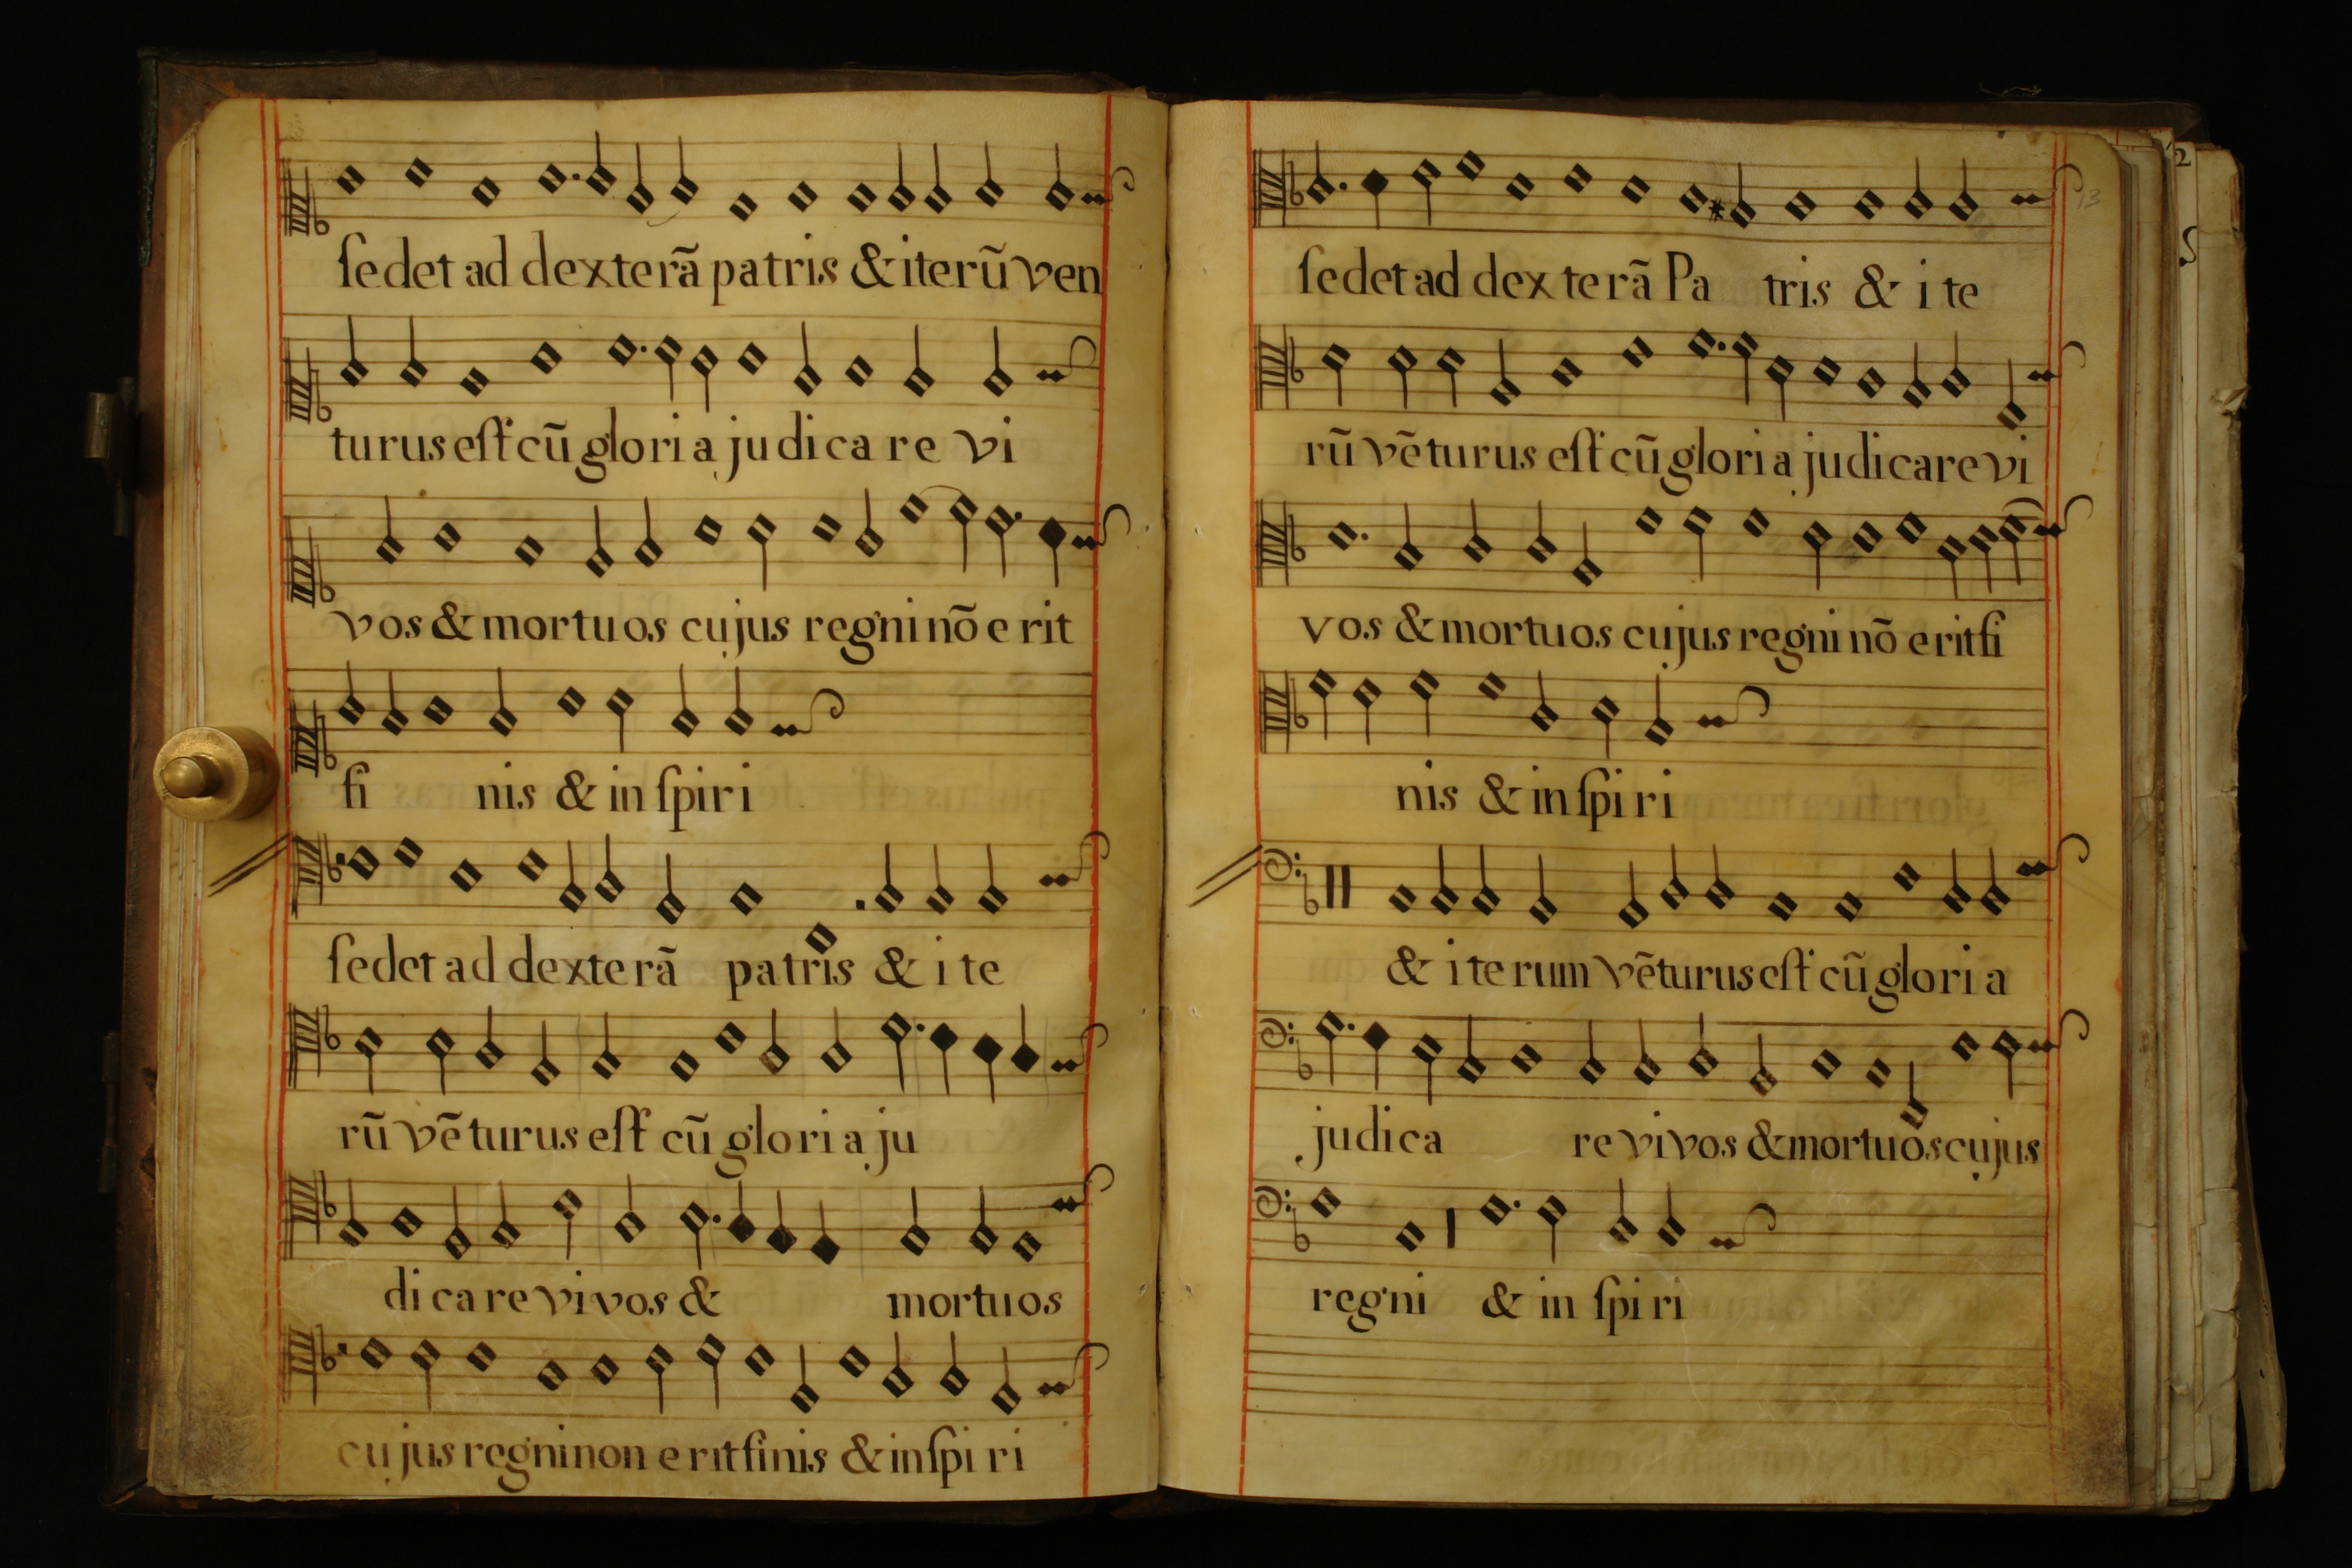 ſedet ad dexterã patris & iterũ ven
turus eſt cũ gloria judicare vi
vos & mortuos cujus regni nõ erit
fi nis & in ſpiri
ſedet ad dexterã patris & ite
rũ vẽturus eſt cũ gloria ju
dicare vivos & mortuos
cujus regni non erit finis & in ſpiri
13
ſedet ad dexterã Pa tris & ite
rũ vẽturus eſt cũ gloria judicare vi
vos & mortuos cujus regni nõ erit fi
nis & in ſpiri
& iterum vẽturus eſt cũ gloria
judica re vivos & mortuos cujus
regni & in ſpiri
2